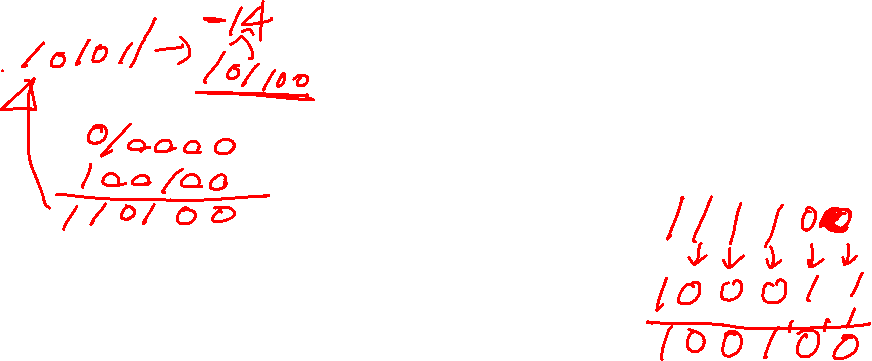 -14
101011 → 101100
010000
100100
110100
111100
100011
100100